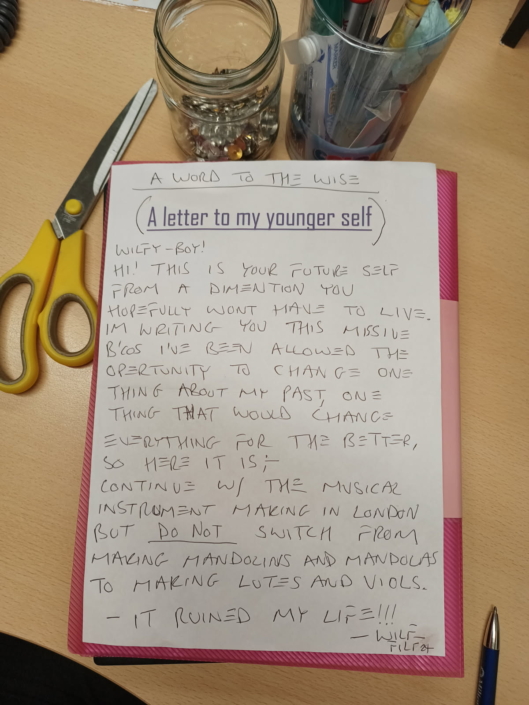 A WORD TO THE WISE
(A letter to my younger self)
WILFY-BOY!
HI! THIS IS YOUR FUTURE SELF
FROM A DIMENTION YOU
HOPEFULLY WONT HAVE TO LIVE.
IM WRITING YOU THIS MISSIVE
B'COS I'VE BEEN ALLOWED THE
OPERTUNITY TO CHANGE ONE
THING ABOUT MY PAST, ONE
THING THAT WOULD CHANGE
EVERYTHING FOR THE BETTER,
SO HERE IT IS;-
CONTINUE W/ THE MUSICAL
INSTRUMENT MAKING IN LONDON
BUT DO NOT SWITCH FROM
MAKING MANDOLINS AND MANDOLAS
TO MAKING LUTES AND VIOLS.
- IT RUINED MY LIFE!!!
- WILF